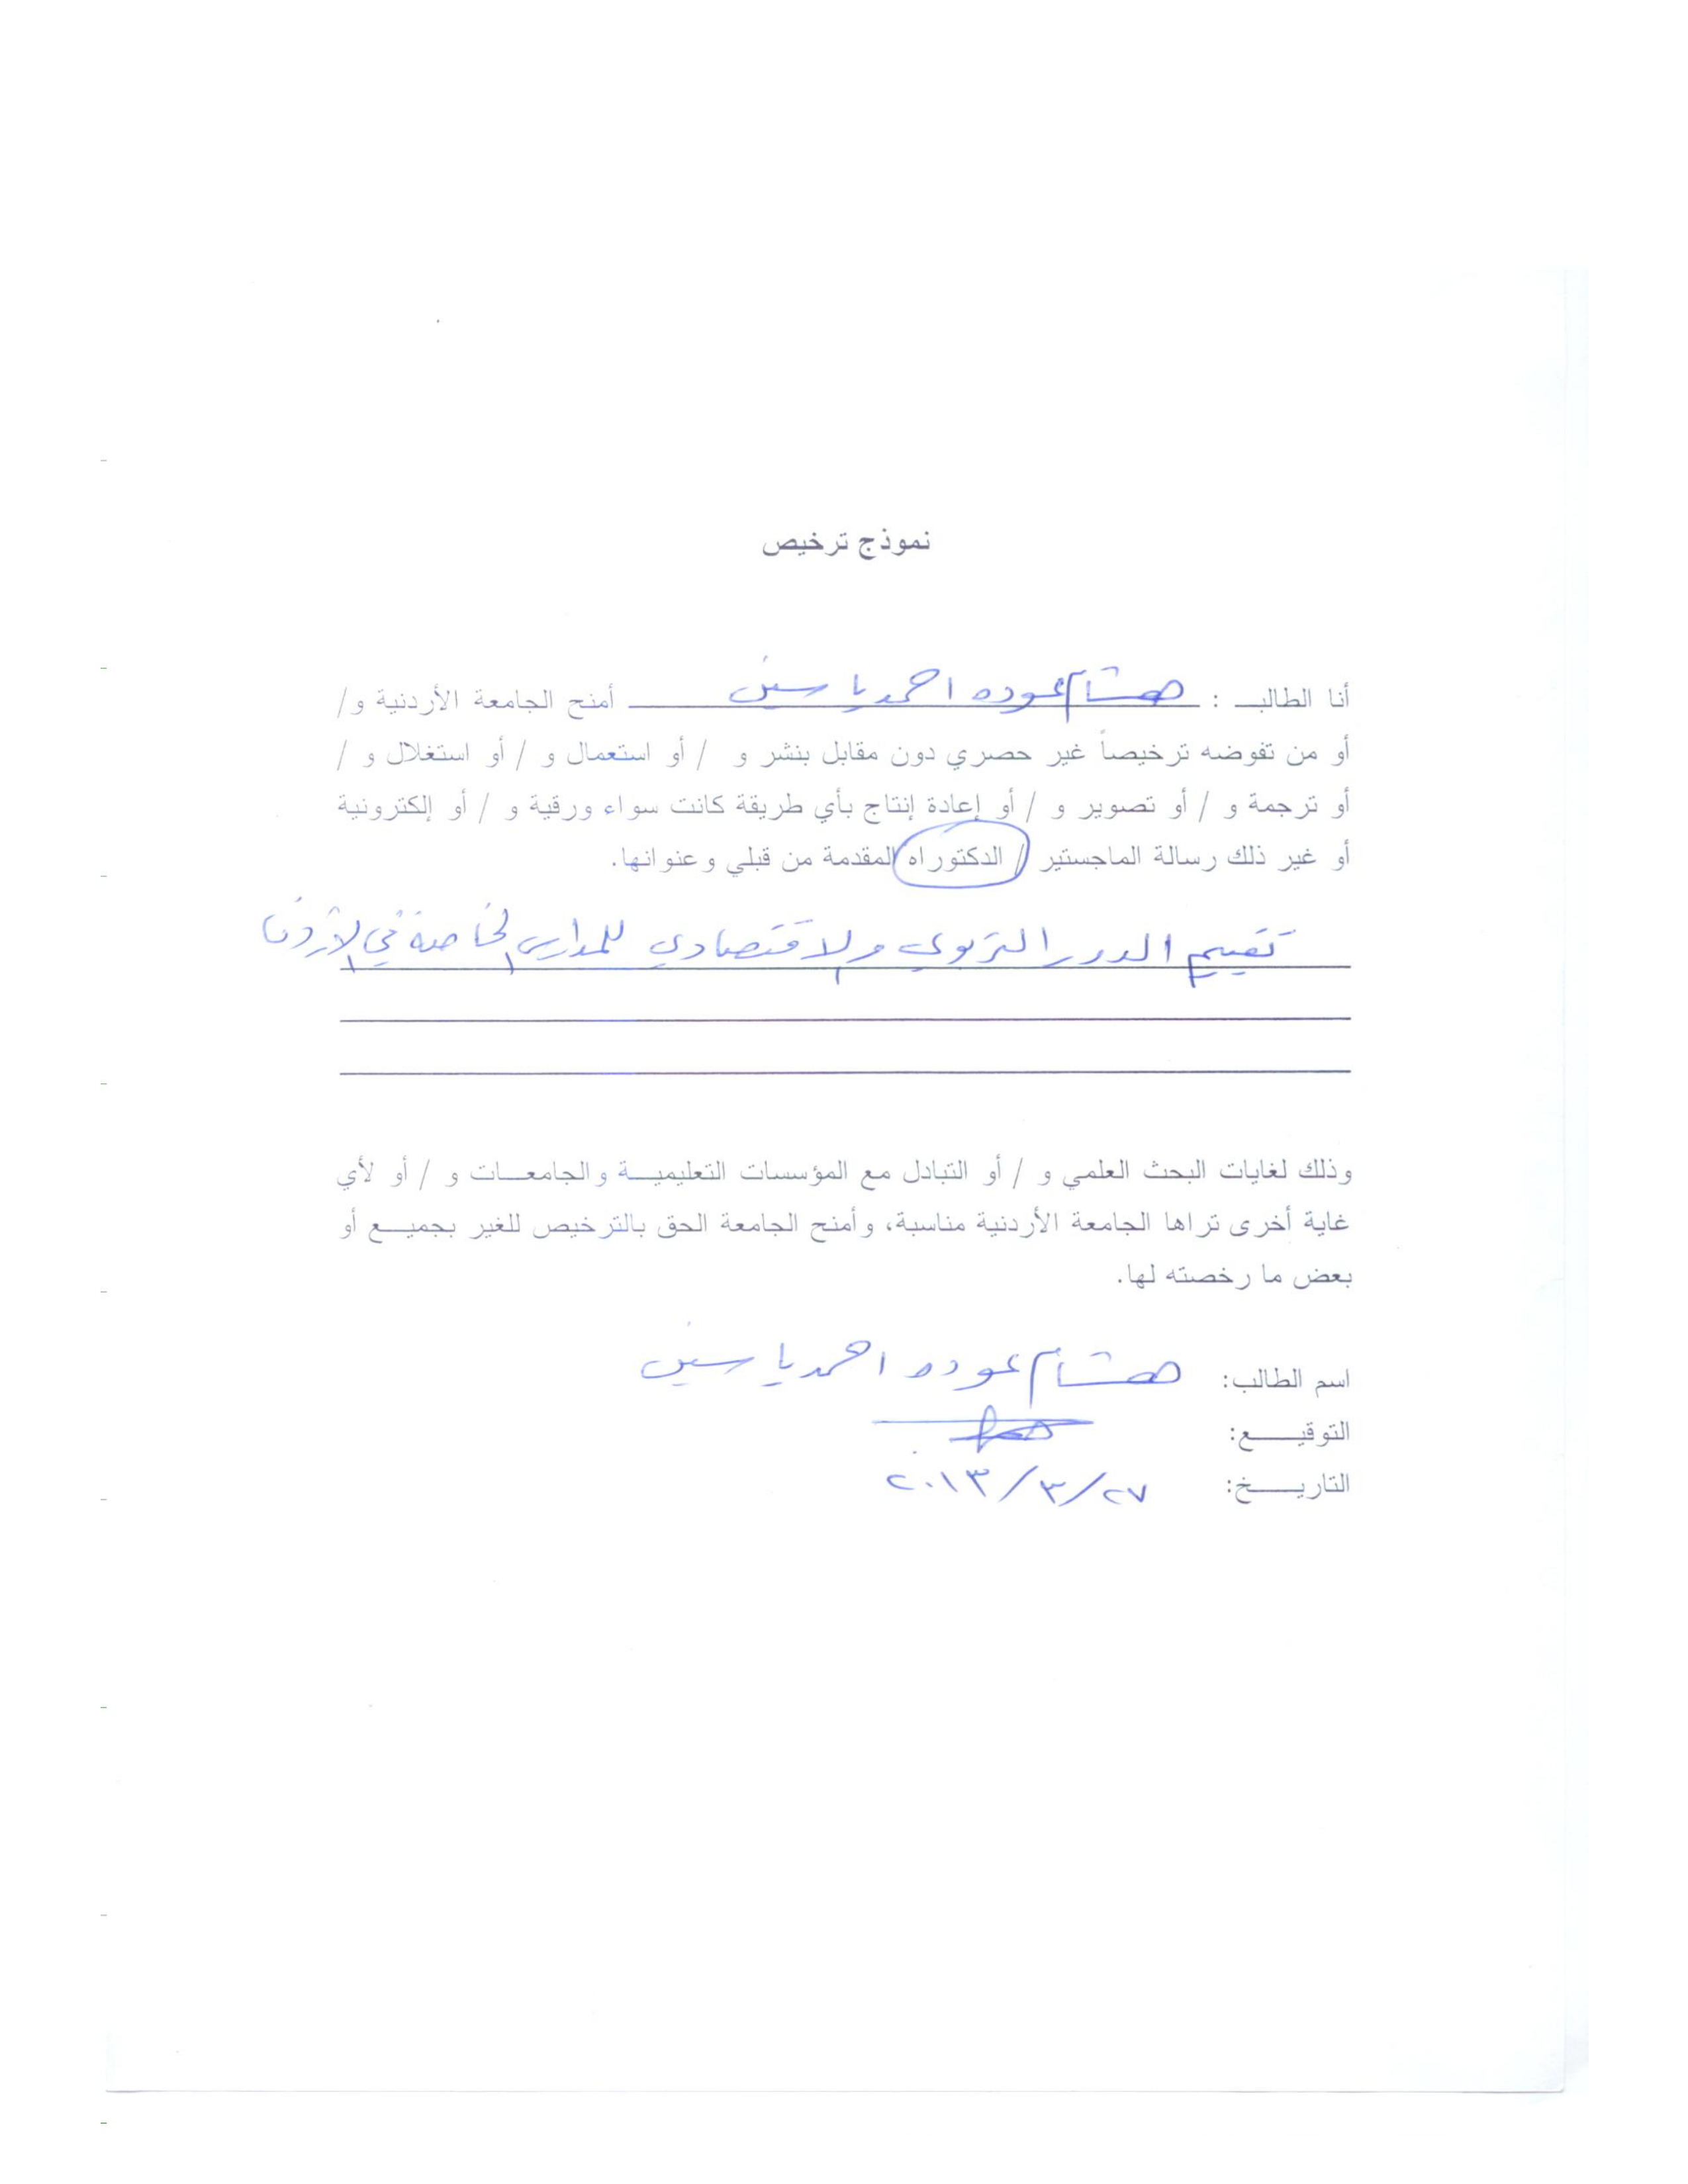 نموذج ترخيص
أنا الطالب : هشام عوده احمد ياسين أمنح الجامعة الأردنية و/
أو من تفوضه ترخيصاً غير حصري دون مقابل بنشر و / أو استعمال و / أو استغلال و /
أو ترجمة و / أو تصوير و / أو إعادة إنتاج بأي طريقة كانت سواء ورقية و / أو إلكترونية
أو غير ذلك رسالة الماجستير / الدكتوراه المقدمة من قبلي وعنوانها.
تقييم الدور التربوي والاقتصادي للمدارس الخاصة في الاردن
وذلك لغايات البحث العلمي و / أو التبادل مع المؤسسات التعليمية والجامعات و / أو لأي
غاية أخرى تراها الجامعة الأردنية مناسبة، وأمنح الجامعة الحق بالترخيص للغير بجميع أو
بعض ما رخصته لها.
اسم الطالب: هشام عوده احمد ياسين
التوقيع:
التاريخ: ٢٧/٣/٢٠١٣